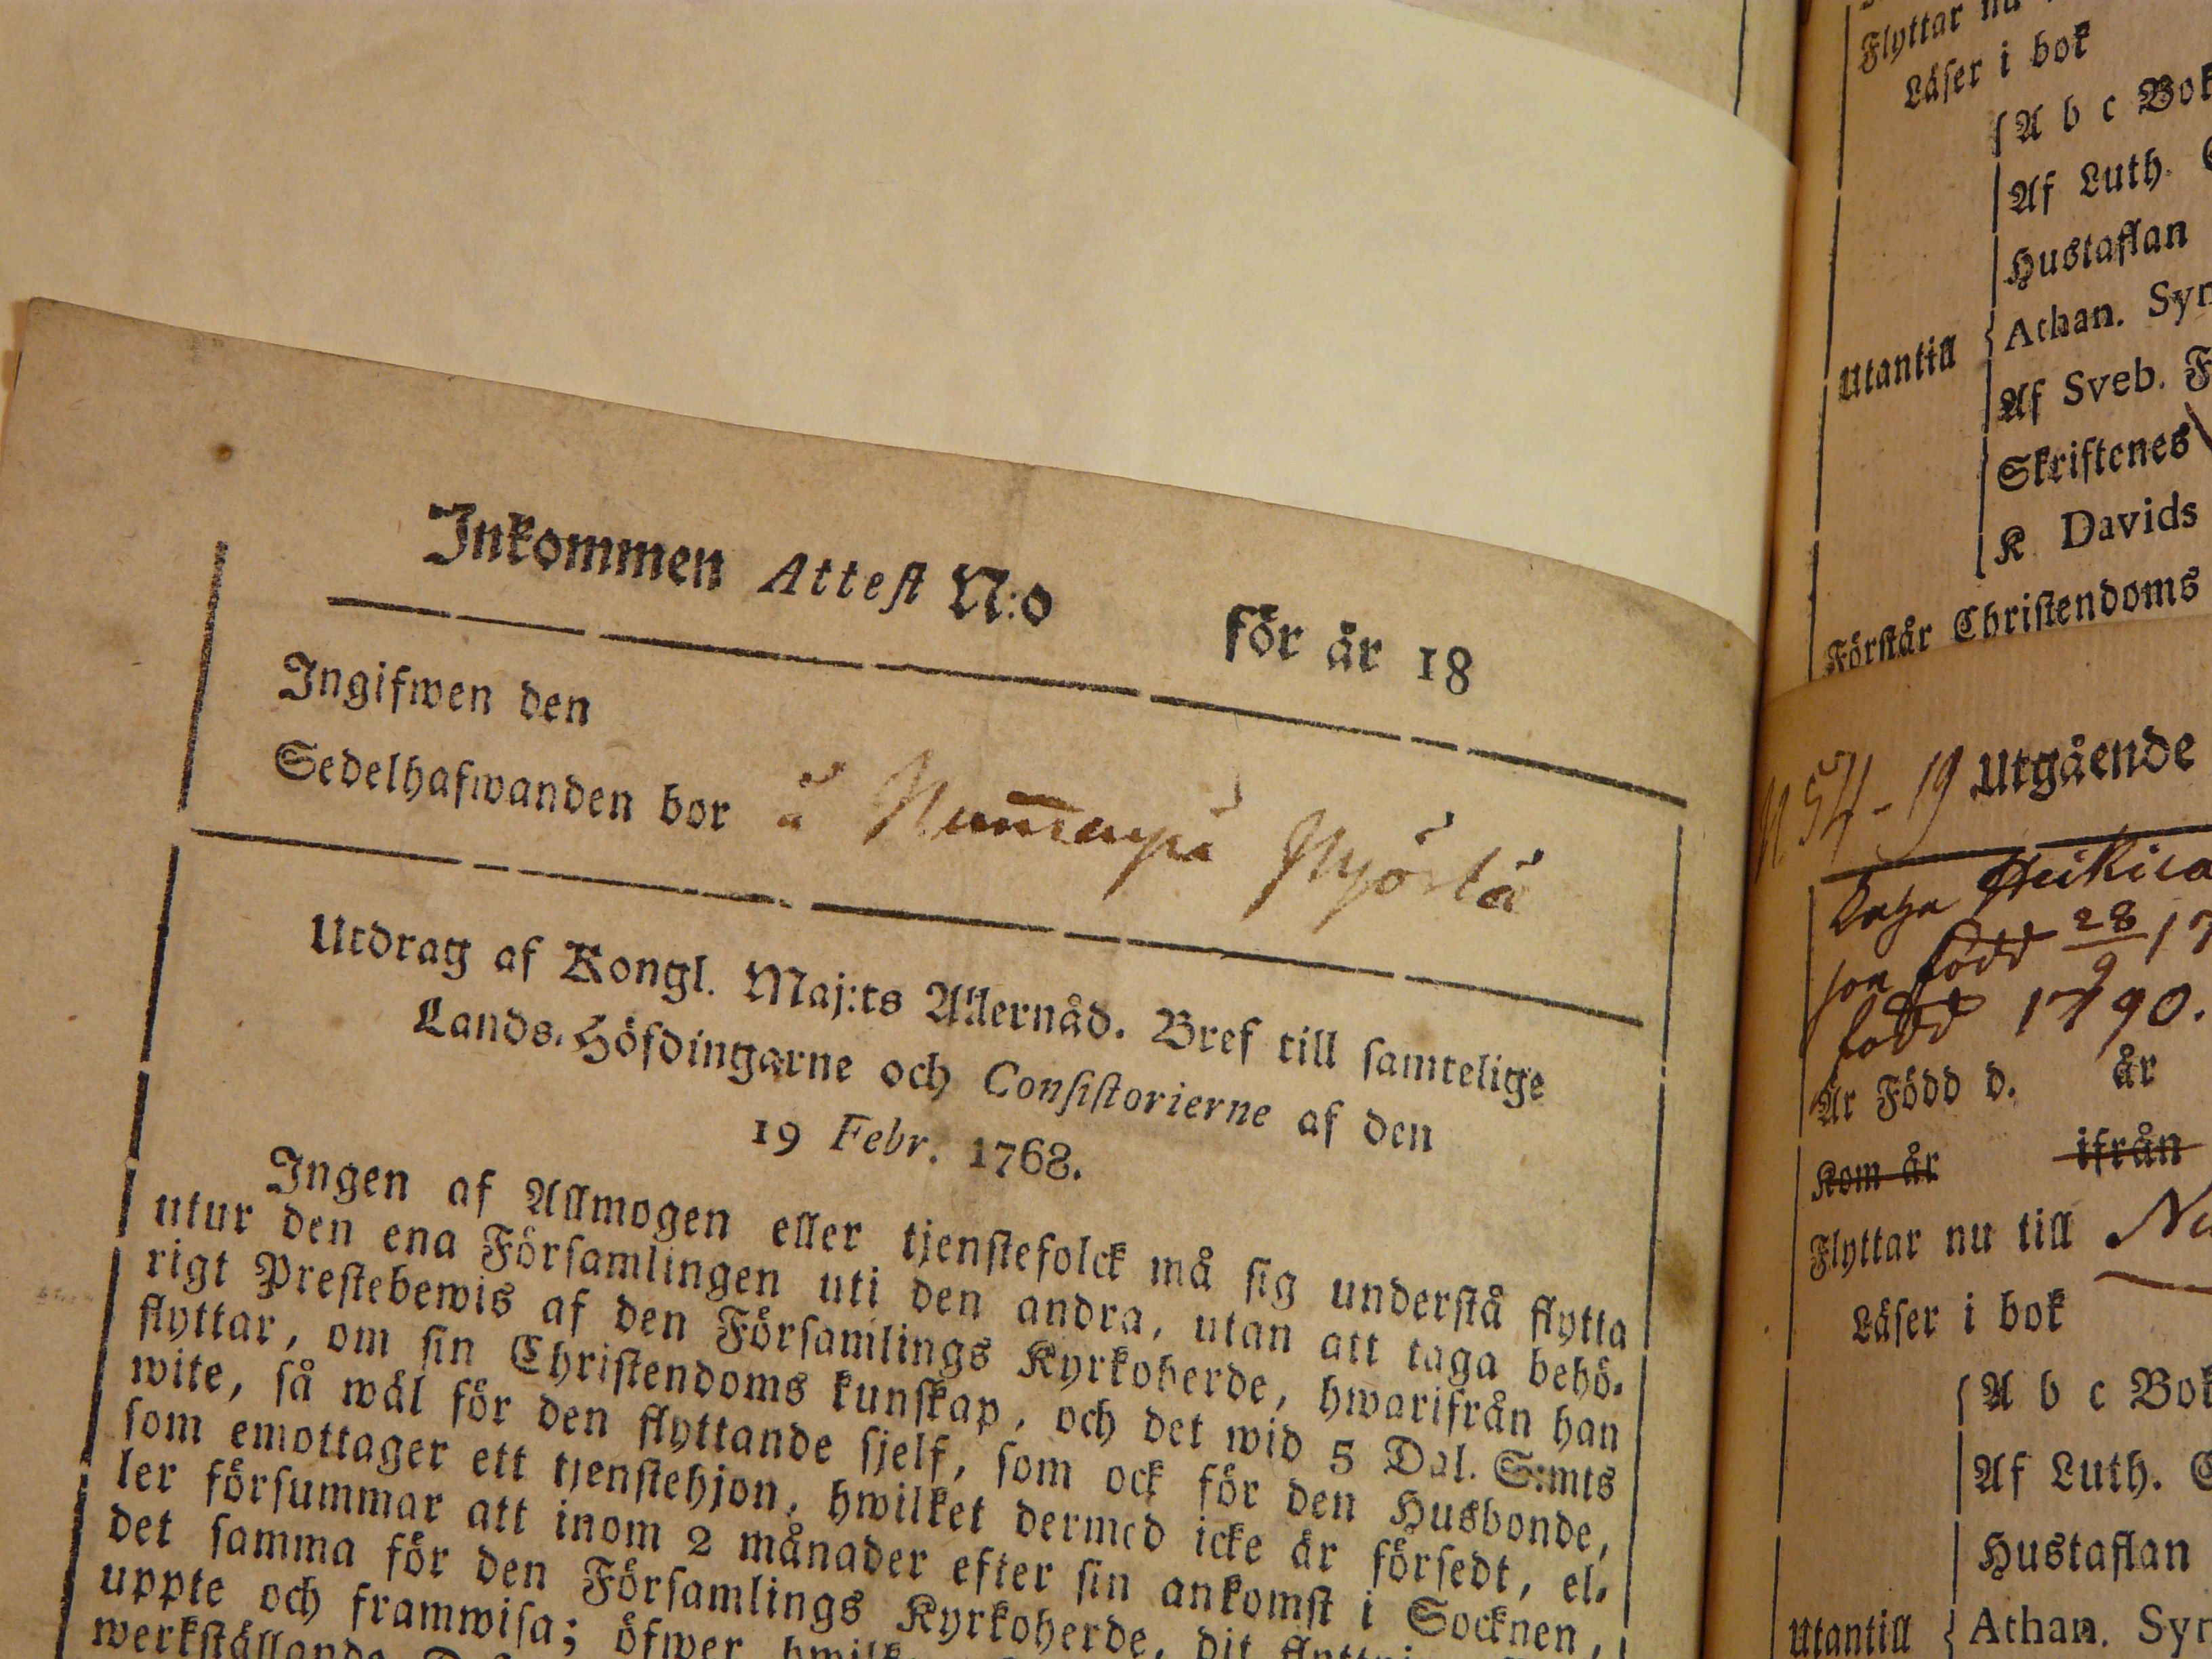 Inkommen Attest N:o för år 18
Ingifwen den
Sedelhafwanden bor å
Utdrag af Kongl. Maj:ts Allernåd. Bref till samtelige
Lands-Höfdingarne och Consistorierne af den
19 Febr. 1768.
Ingen af Allmogen eller tjenstefolck må sig understå flytta
utur den ena Församlingen uti den andra, utan att taga behö-
rigt Prestebewis af den Församlings Kyrkoherde, hwarifrån han
flyttar, om sin Christendoms kunskap, och det wid 5 Dal. S:mts
wite, så wäl för den flyttande sjelf, som ock för den Husbonde,
som emottager ett tjenstehjon, hwilket dermed icke är försedt, el-
ler försummar att inom 2 månader efter sin ankomst i Socknen,
det samma för den Församlings Kyrkoherde, dit
uppte och framwisa; öfwer
Flyttar nu
Läser i bok
A b c Bok
Af Luth.
Hustaflan
Athan. Syr
Utantill
Af Sveb.
Skriftenes
K Davids
Förstår Christendoms
N 54-19 Utgående
Heikki
son född 28/9 17
född 1790.
Är Född d. år
Kom år ifrån
Flyttar nu till
Läser i bok
A b c Bok
Af Luth.
Hustaflan
Utantill
Athan. Syr